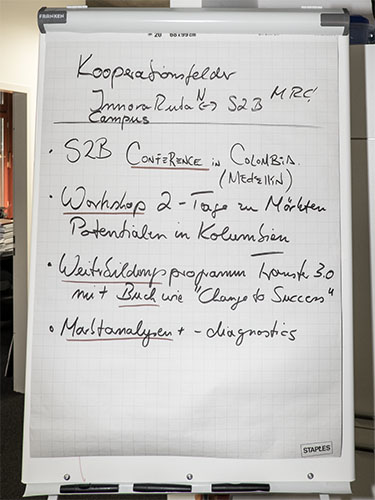 FRANKEN
20 68x99cm
Kooperationsfelder
InnovaRuta N ↔ S2B MRC!
Campus
• S2B CONFERENCE IN COLOMBIA.
(MEDELLIN)
• Workshop 2-Tage zu Märkten
Potentialen in Kolumbien
• Weiterbildungsprogramm Transfer 3.0
mit Buch wie "Change to Success"
• Marktanalysen + -diagnostics
STAPLES